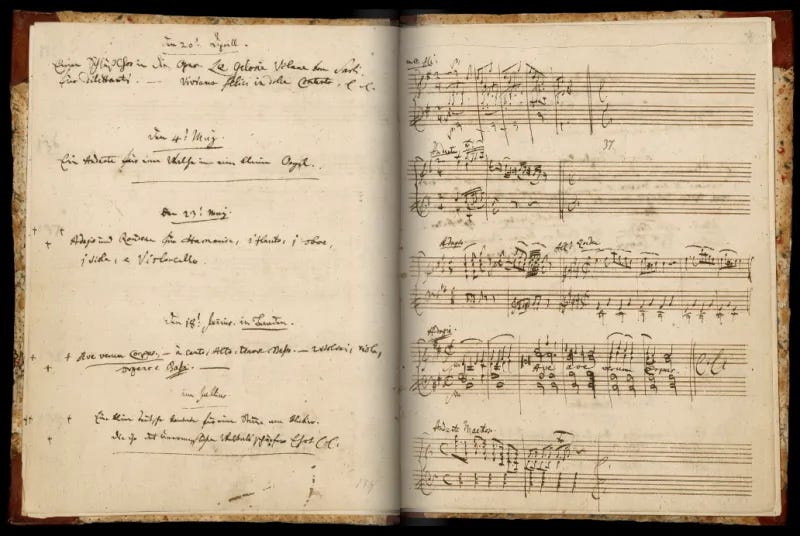 Den 20:t April.
Einen Schluß Chor in die Oper. Le gelosie Villane von Sarti.
für Dilettanti. — Viviamo felici in dolce contento. etc.
Den 4:t May
Ein Andante für eine Walze in eine kleine Orgel.
Den 23:t May.
Adagio und Rondeau für Harmonica, 1 flauto, 1 oboe,
1 viola, e Violoncello.
Den 18:t Junius. in Baaden.
Ave verum Corpus. — à canto, Alto, tenore, Basso. — 2 violini, viola,
organo e Basso.
im Jullius
Eine kleine teutsche kantate für eine Stimme am klavier.
Die ihr des unermesslichen Weltalls schöpfer Ehrt etc.
37.
Andante
Adagio
Rondo
Adagio
Ave ave verum Corpus
Andante Maestoso.